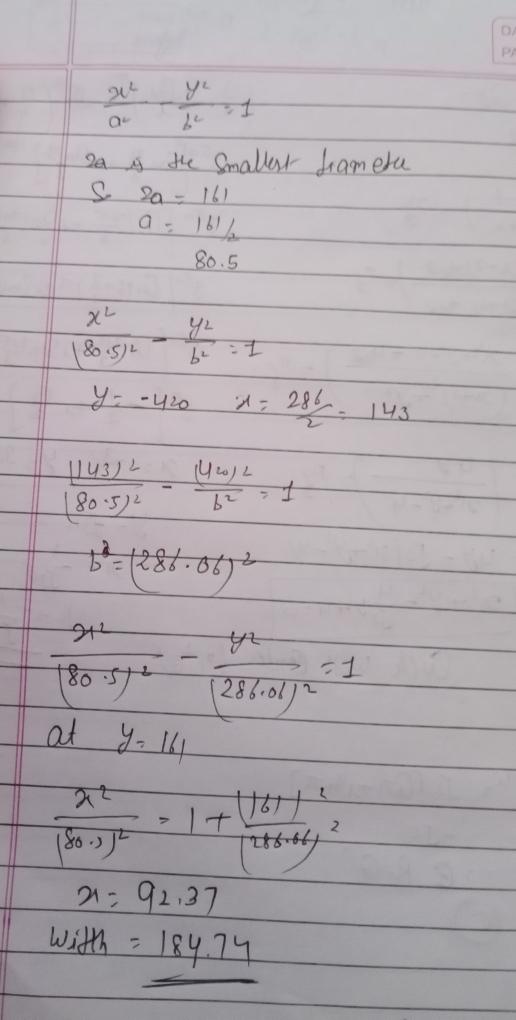 DA
PA
x²/a² - y²/b² = 1
2a is the Smallest diameter
So 2a = 161
a = 161/2
80.5
x²/(80.5)² - y²/b² = 1
y = -420 x = 286/2 = 143
(143)²/(80.5)² - (420)²/b² = 1
b² = (286.06)²
x²/(80.5)² - y²/(286.06)² = 1
at y = 161
x²/(80.5)² = 1 + (161)²/(286.06)²
x = 92.37
Width = 184.74